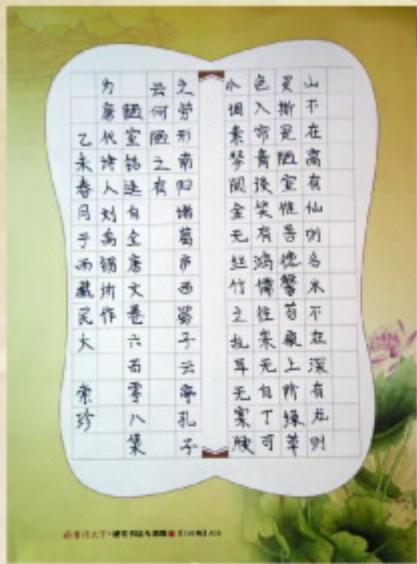 山不在高有仙则名水不在深有龙则
灵斯是陋室惟吾德馨苔痕上阶绿草
色入帘青谈笑有鸿儒往来无白丁可
以调素琴阅金无丝竹之乱耳无案牍
之劳形南阳诸葛庐西蜀子云亭孔子
云何陋之有
陋室铭选自全唐文卷六百零八集
为唐代诗人刘禹锡所作
乙未春月于西藏民大 索珍
硬笔书法专用纸